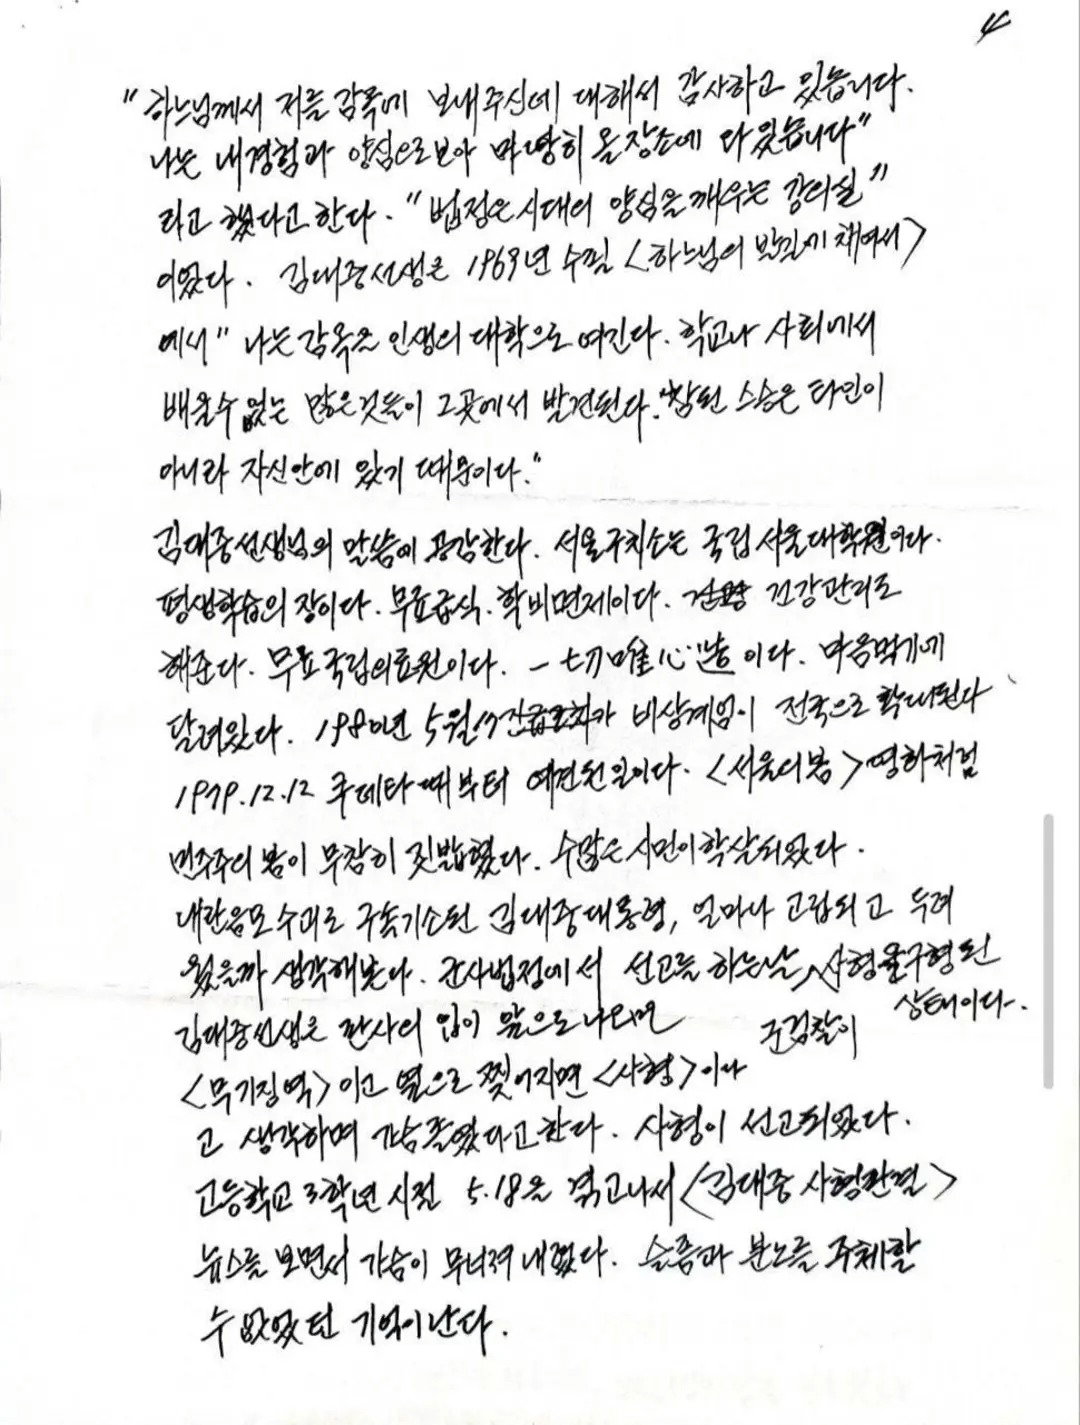 4
"하느님께서 저를 감옥에 보내주신데 대해서 감사하고 있습니다.
나는 내경험과 양심으로보아 마땅히 올장소에 다 있습니다"
라고 했다고한다. "법정은 시대의 양심을 깨우는 강의실"
이었다. 김대중선생은 1969년 수필 <하느님의 발길에 채여서>
에서 "나는 감옥을 인생의 대학으로 여긴다. 학교나 사회에서
배울수 없는 많은것들이 그곳에서 발견된다. "참된 스승은 타인이
아니라 자신안에 있기 때문이다."
김대중선생님의 말씀에 공감한다. 서울구치소는 국립서울대학원이다.
평생학습의 장이다. 무료급식. 학비면제이다. 건강관리도
해준다. 무료국립의료원이다. 一切唯心造이다. 마음먹기에
달려있다. 1980년 5월17 비상계엄이 전국으로 확대된다
1979.12.12 쿠데타때부터 예견된일이다. <서울의봄> 영화처럼
민주주의 봄이 무참히 짓밟혔다. 수많은 시민이 학살되었다.
내란음모 수괴로 구속기소된 김대중대통령, 얼마나 고립되고 두려
웠을까 생각해본다. 군사법정에서 선고를 하는날, 사형을구형된
군검찰이 상태이다.
김대중선생은 판사의 입이 앞으로나오면
<무기징역>이고 옆으로 찢어지면 <사형>이다
고 생각하며 가슴졸였다고한다. 사형이 선고되었다.
고등학교 3학년 시절 5.18을 겪고나서 <김대중 사형판결>
뉴스를 보면서 가슴이 무너져 내렸다. 슬픔과 분노를 주체할
수 없었던 기억이난다.